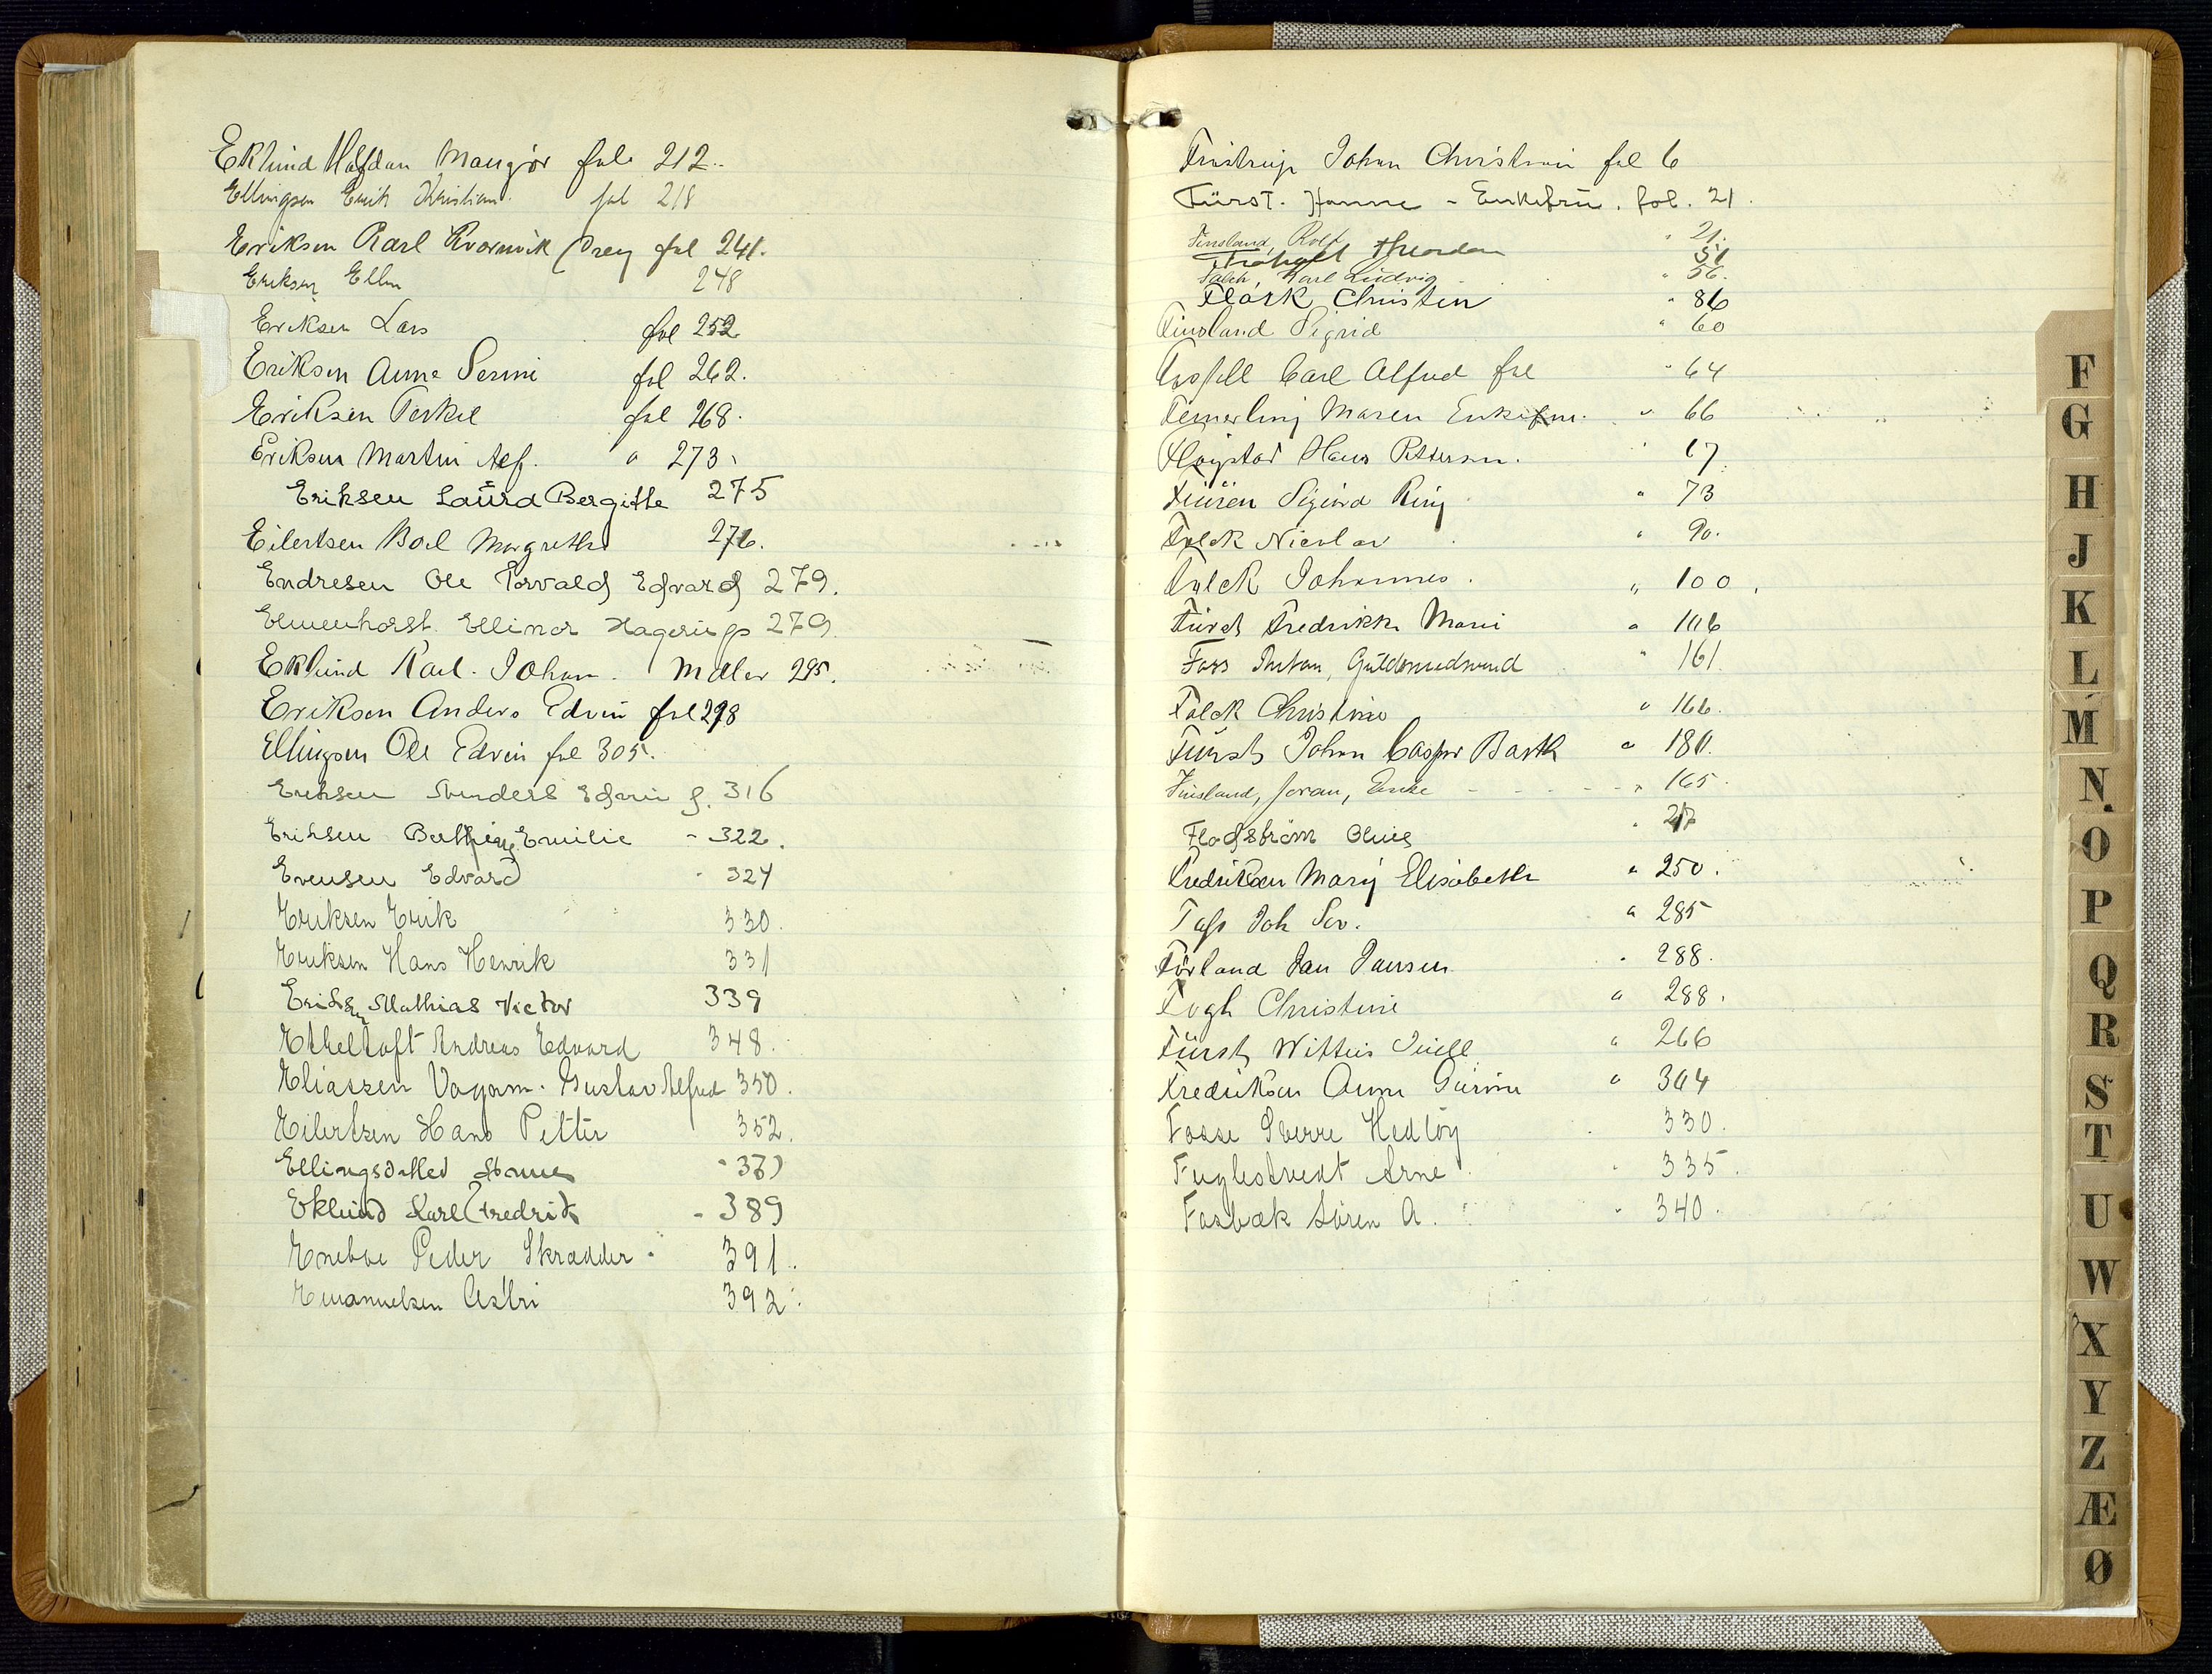 Eklund Halfdan Mangør fol. 212.
Ellingsen Erik Kristian fol 218
Eriksen Karl Kvarnvik fol 241.
Eriksen Ellen 248
Eriksen Lars fol 252
Eriksen Anne Serine fol 262.
Eriksen Terkel fol 268.
Eriksen Martin Alf. " 273.
Eriksen Laura Bergitte 275
Eilertsen Boel Margrethe 276.
Endresen Ole Torvald Edvard 279.
Elmenhorst Ellinor Hagerups 279.
Eklund Karl Johan Møller 295.
Eriksen Anders Edvin fol 298
Ellingsen Ole Edvin fol 305.
Eriksen Edvin f. 316
Eriksen Emilie - 322.
Evensen Edvard - 324
Eriksen Erik 330.
Eriksen Hans Henrik 331
Eriksen Mathias Victor 339
Etheltoft Andreas Edvard 348.
Eliassen Gustav Alfred 350.
Eilertsen Hans Petter 352.
Eklund Karl Fredrik - 389
Eneboe Peder Skrædder 391.
Emanuelsen Astri 392.
Fristrup Johan Christian fol 6
Fürst. Hanne - Enkefru. fol. 21.
Finsland, Rolf " 21.
Theodor 51
Falck, Karl Ludvig " 56.
Flørk Christen " 86
Finsland Sigrid " 60
Carl Alfred fol " 64
Femerling Maren Enkefru. " 66
Fløystad Hans Pettersen. " 67
Sigurd Ring " 73
Falck Nicolai " 90.
Falck Johannes. " 100.
Fürst Fredrikke Marie " 106
Foss Anton, Guldsmedsvend " 161
Falck Christine " 166.
Fürst Johan Casper Barth " 180.
Finsland, Joran, Enke - - - - " 165.
Flodstrøm " 217
Fredriksen Mary Elisabeth " 250.
Joh Sev. " 285
Førland Jan Jansen " 288.
Fogh Christine " 288.
Fürst Juell " 266
Fredriksen Anne Gurine " 304
Fosse Sverre Hedløy 330.
Fuglestvedt Arne " 335.
Fosbæk Søren A. " 340.
F
G
H
J
K
L
M
N
O
P
Q
R
S
T
U
W
X
Y
Z
Æ
Ø